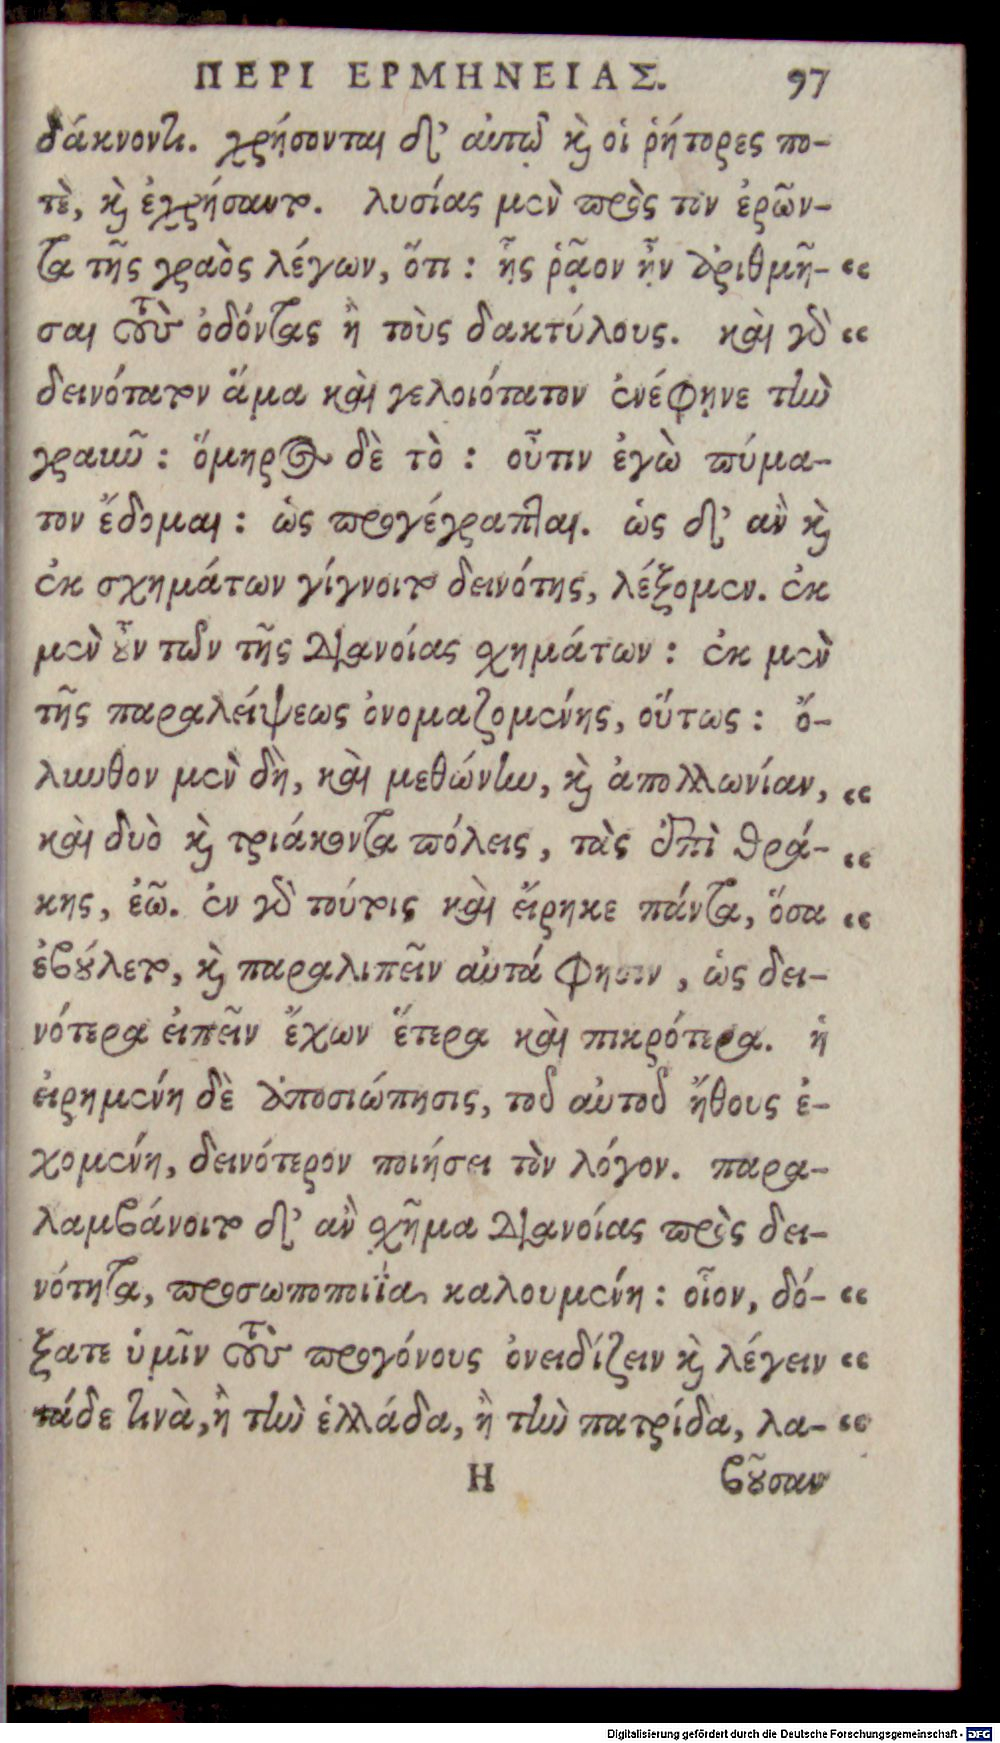 ΠΕΡΙ ΕΡΜΗΝΕΙΑΣ. 97
δάκνοντι. χρήσονται δ' αὐτῷ καὶ οἱ ῥήτορες πο-
τὲ, καὶ ἐχρήσαντο. λυσίας μὲν πρὸς τὸν ἐρῶν-
τα τῆς γραὸς λέγων, ὅτι : ἧς ῥᾷον ἦν ἀριθμῆ- “
σαι τοὺς ὀδόντας ἢ τοὺς δακτύλους. καὶ γὰρ “
δεινότατον ἅμα καὶ γελοιότατον ἐνέφηνε τὴν
γραῦν : ὅμηρος δὲ τὸ : οὖτιν ἐγὼ πύμα-
τον ἔδομαι : ὡς προγέγραπται. ὡς δ' ἂν καὶ
ἐκ σχημάτων γίγνοιτο δεινότης, λέξομεν. ἐκ
μὲν οὖν τῶν τῆς διανοίας σχημάτων : ἐκ μὲν
τῆς παραλείψεως ὀνομαζομένης, οὕτως : ὄ-
λυνθον μὲν δὴ, καὶ μεθώνην, καὶ ἀπολλωνίαν, “
καὶ δυὸ καὶ τριάκοντα πόλεις, τὰς ἐπὶ θρά- “
κης, ἐῶ. ἐν γὰρ τούτοις καὶ εἴρηκε πάντα, ὅσα “
ἐβούλετο, καὶ παραλιπεῖν αὐτά φησιν, ὡς δει-
νότερα εἰπεῖν ἔχων ἕτερα καὶ πικρότερα. ἡ
εἰρημένη δὲ ἀποσιώπησις, τοῦ αὐτοῦ ἤθους ἐ-
χομένη, δεινότερον ποιήσει τὸν λόγον. παρα-
λαμβάνοιτο δ' ἂν σχῆμα διανοίας πρὸς δει-
νότητα, προσωποποιΐα καλουμένη : οἷον, δό- “
ξατε ὑμῖν τοὺς προγόνους ὀνειδίζειν καὶ λέγειν “
τάδε τινὰ, ἢ τὴν ἑλλάδα, ἢ τὴν πατρίδα, λα- “
H βοῦσαν
Digitalisierung gefördert durch die Deutsche Forschungsgemeinschaft - DFG